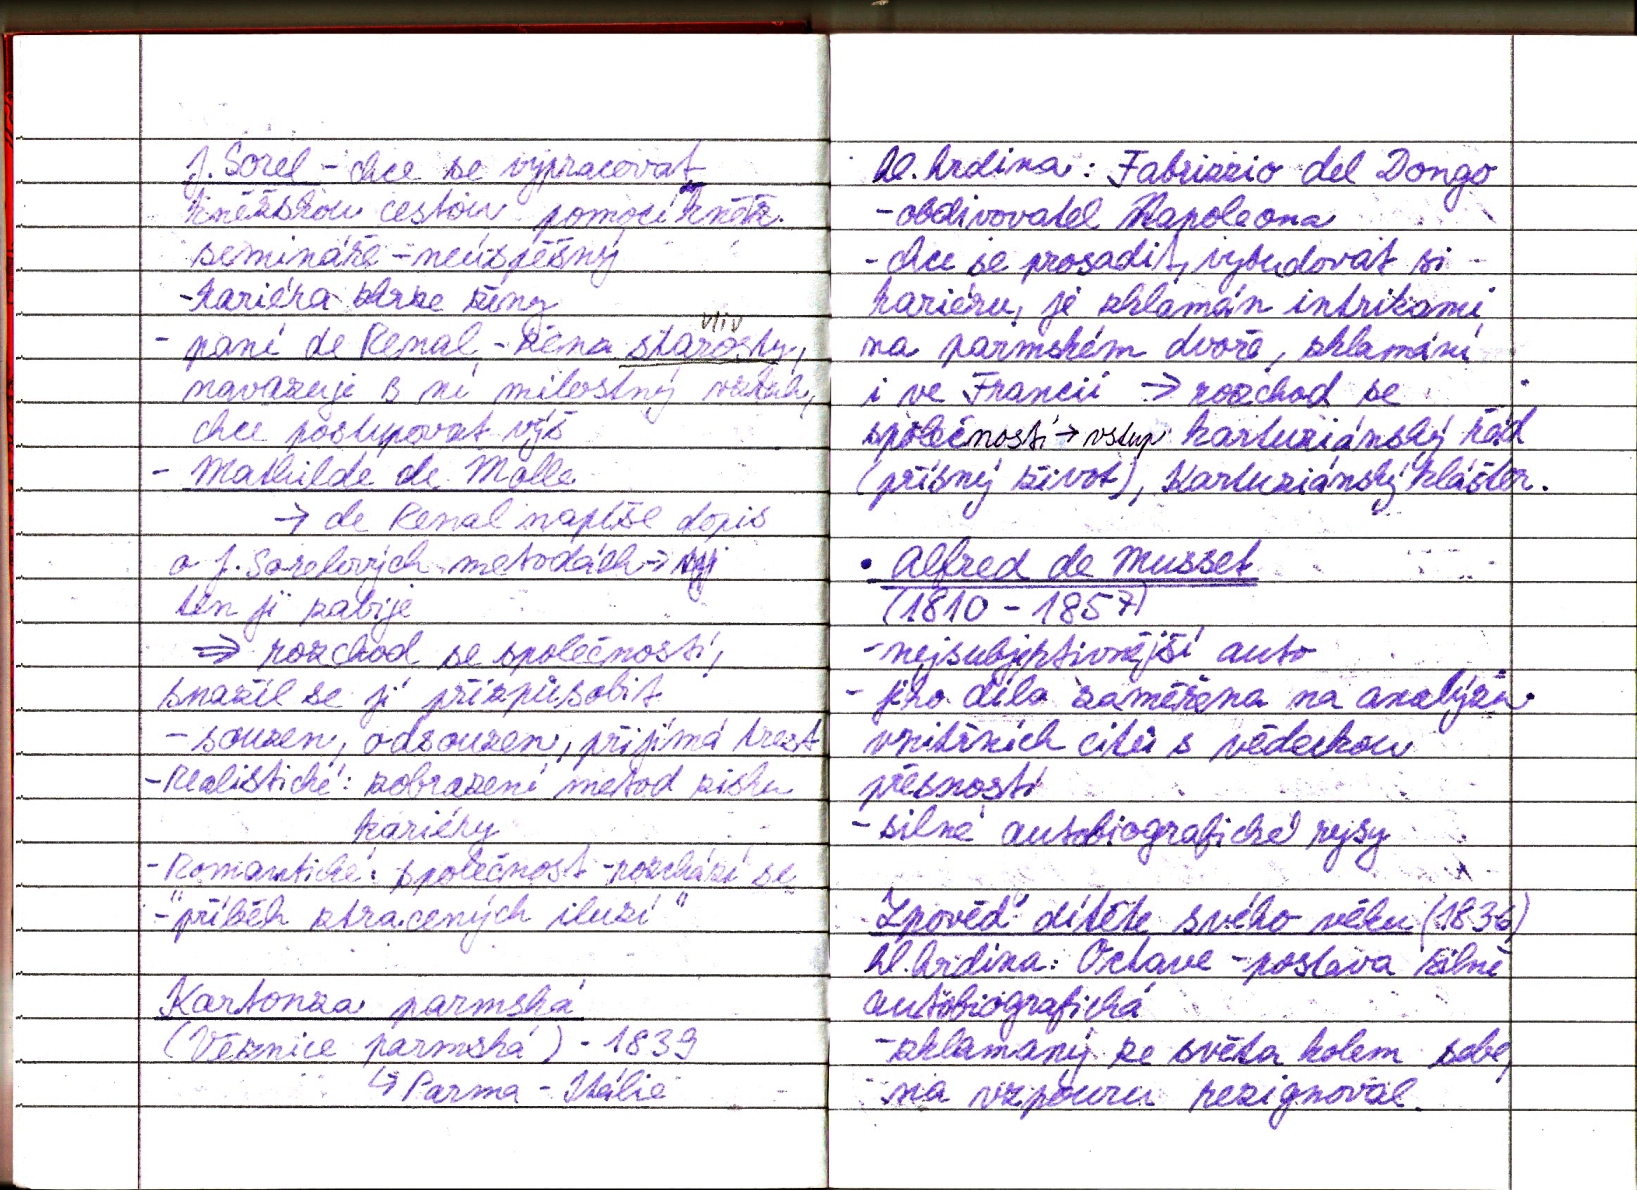 J. Sorel - chce se vypracovat
kněžskou cestou pomocí kněž.
semináře - neúspěšný
- kariéra skrze ženy
vliv
- paní de Renal - žena starosty,
navazuje s ní milostný vztah,
chce postupovat výš
- Mathilde de Molle
→ de Renal napíše dopis
o J. Sorelových metodách →
ten ji zabije
⇒ rozchod se společností,
snažil se jí přizpůsobit
- souzen, odsouzen, přijímá trest
- Realistické: zobrazení metod zisku
kariéry
- Romantické: společnost - rozchází se
- "příběh ztracených iluzí"
Kartouza parmská
(Věznice parmská) - 1839
↳ Parma - Itálie
hl. hrdina: Fabrizzio del Dongo
- obdivovatel Napoleona
- chce se prosadit, vybudovat si -
kariéru, je zklamán intrikami
na parmském dvoře, zklamání
i ve Francii → rozchod se
společností → vstup kartuziánský řád
(přísný život), Kartuziánský klášter.
• Alfred de Musset
(1810 - 1857)
- nejsubjektivnější auto
- jeho díla zaměřena na analýzu
vnitřních citů s vědeckou
přesností
- silné autobiografické rysy
Zpověď dítěte svého věku (1836)
hl. hrdina: Octave - postava silně
autobiografická
- zklamaný ze světa kolem sebe,
na vzpouru rezignoval.